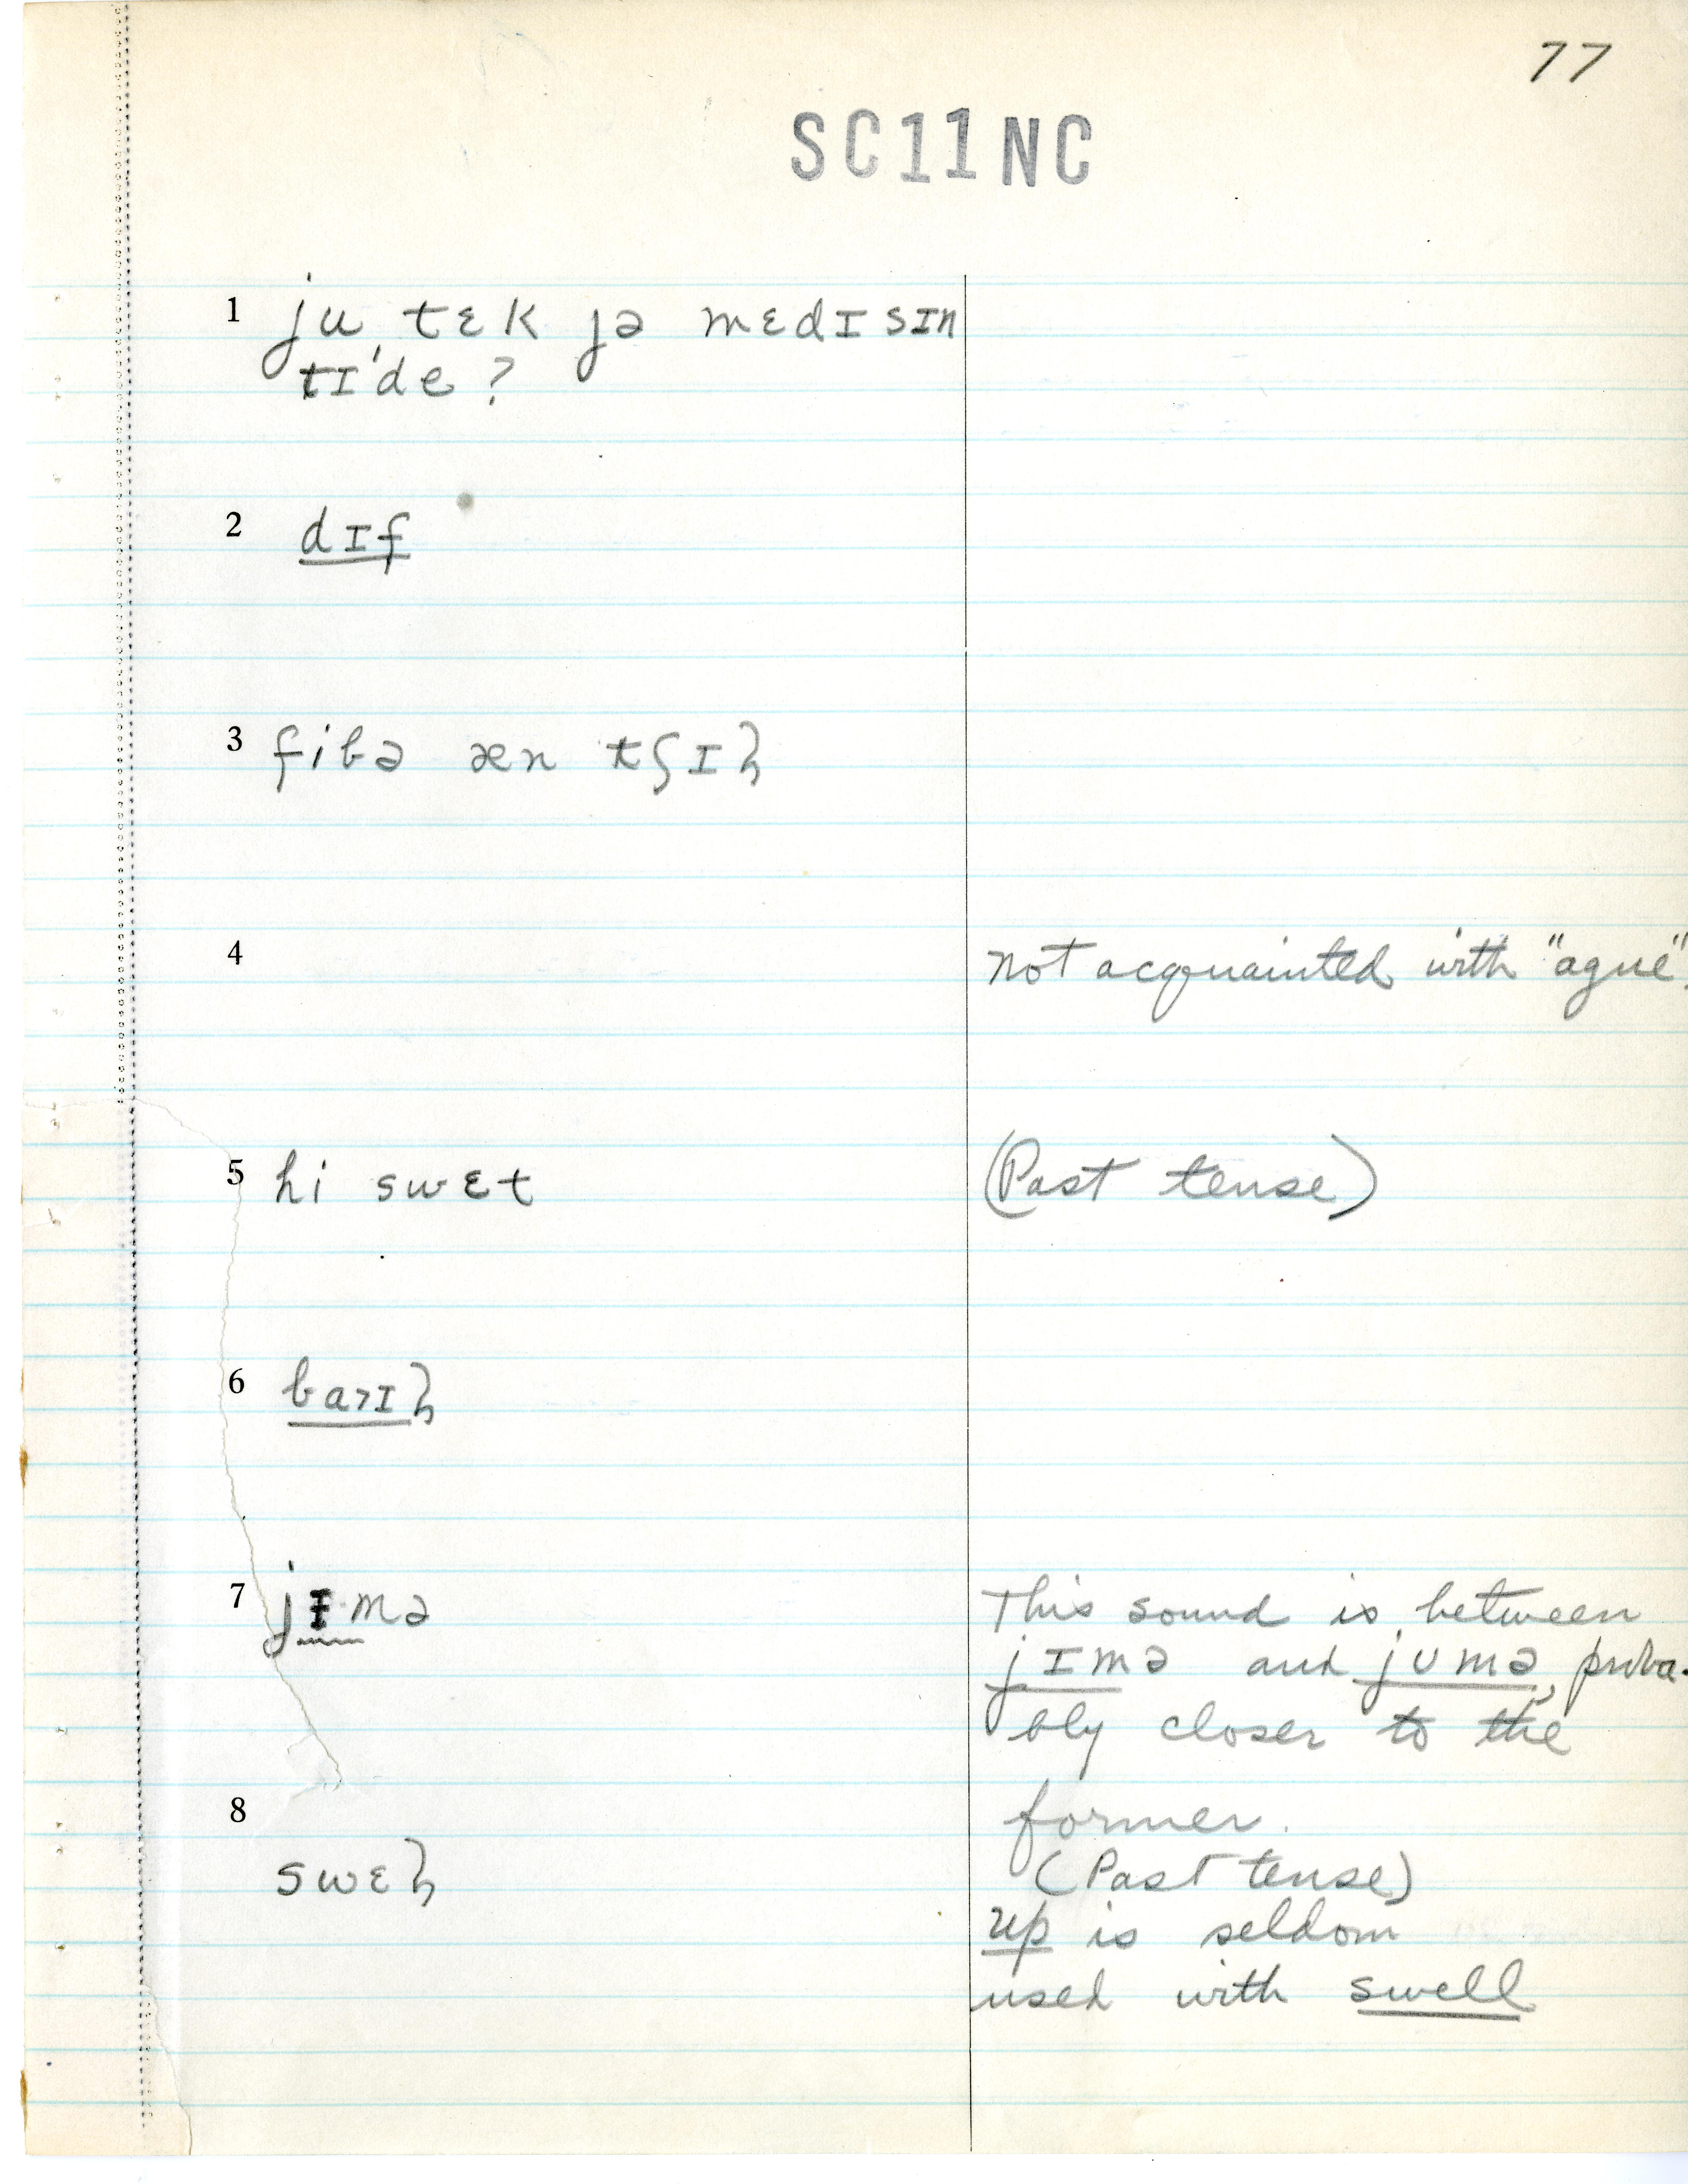 77
SC11NC
1 ju tɛk jə mɛdɪsɪn
tɪ'de ?
2 dɪf
3 fibə æn tʃɪɫ
4 not acquainted with "ague".
5 hi swɛt (Past tense)
6 baɪɫ
7 jɪmə This sound is between
jɪmə and jʊmə, proba-
bly closer to the
8 former.
swɛɫ (Past tense)
up is seldom
used with swell